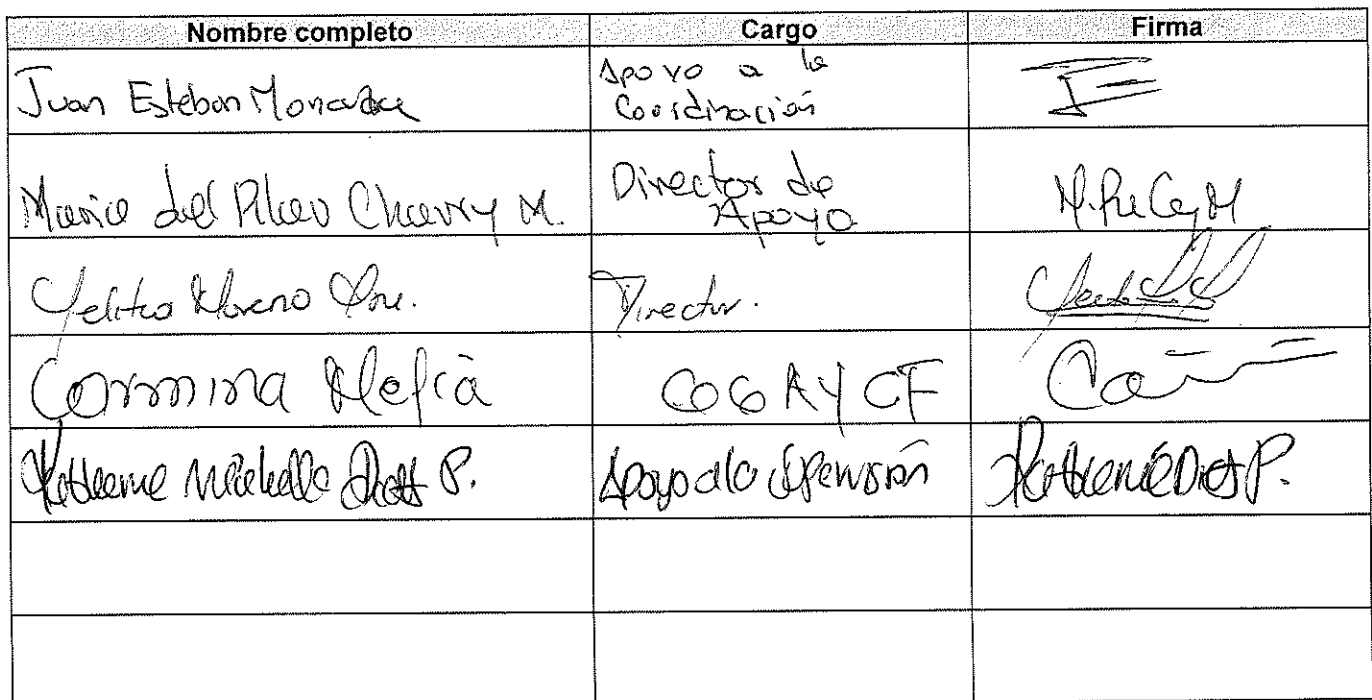 Nombre completo Cargo Firma
Juan Esteban Moncada
Apoyo a la
Coordinación
Maria del Pilar Charry M.
Director de
Apoyo
Yelitza Moreno
Director.
Carmina Mejía
Katherine Michelle P.
Apoyo a la Supervisión
Katherine P.